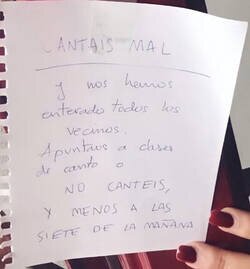 CANTAIS MAL
y nos hemos
enterado todos los
vecinos.
Apuntaos a clases
de canto o
NO CANTEIS,
Y MENOS A LAS
SIETE DE LA MAÑANA